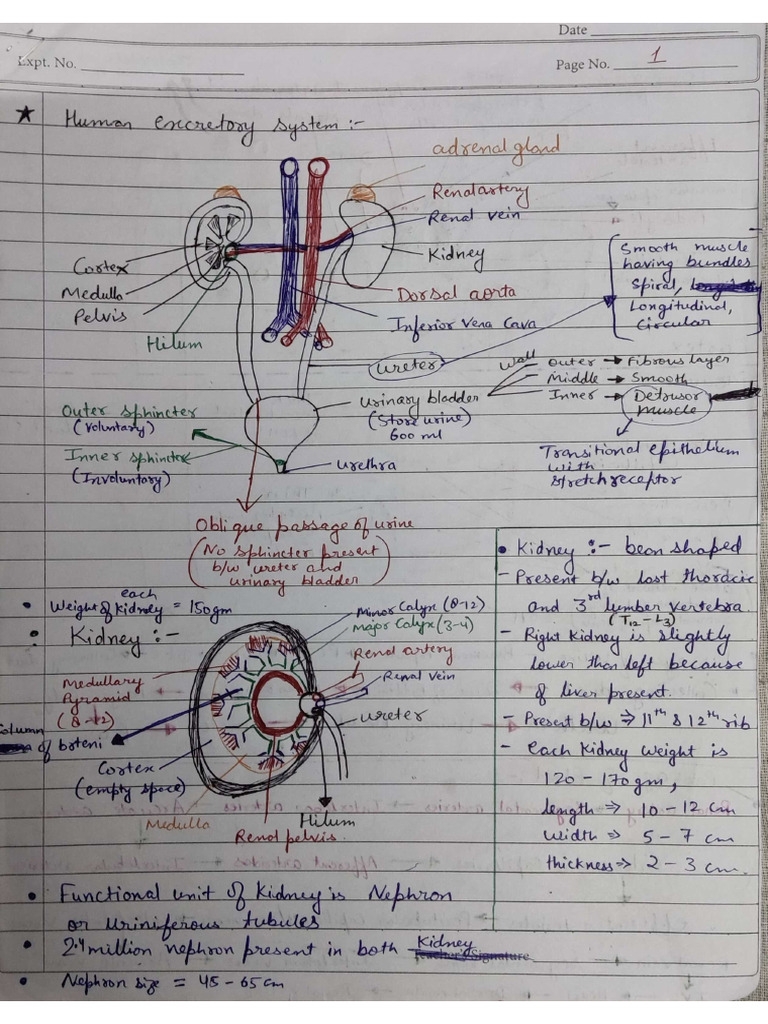 Date
Expt. No.
Page No. 1
★ Human excretory system :-
adrenal gland
Renal artery
Renal vein
Kidney
Cortex
Medulla
Pelvis
Hilum
Dorsal aorta
Inferior Vena Cava
Smooth muscle
having bundles
Spiral,
Longitudinal,
Circular
Ureter
Wall
Outer → Fibrous layer
Middle → Smooth
Inner → Detrusor
muscle
Urinary bladder
(Store urine)
600 ml
Outer sphincter
(Voluntary)
Inner sphincter
(Involuntary)
Urethra
Transitional epithelium
with
stretch receptor
Oblique passage of urine
(No sphincter present
b/w ureter and
urinary bladder)
• Weight of each kidney = 150gm
: Kidney :-
Minor Calyx (8-12)
Major Calyx (3-4)
Renal artery
Renal vein
Ureter
Medullary
Pyramid
(8-12)
Column
of boteni
Cortex
(empty space)
Medulla
Renal pelvis.
Hilum
• Kidney :- bean shaped
- Present b/w last thoracic
and 3rd lumber vertebra.
(T12 - L3)
- Right Kidney is slightly
lower than left because
of liver present.
- Present b/w ⇒ 11th & 12th rib
- Each Kidney weight is
120 - 170 gm,
length ⇒ 10 - 12 cm
width ⇒ 5 - 7 cm
thickness ⇒ 2 - 3 cm.
• Functional unit of Kidney is Nephron
or Uriniferous tubules
• 2.4 million nephron present in both Kidney
Teacher's Signature
• Nephron size = 45 - 65 cm